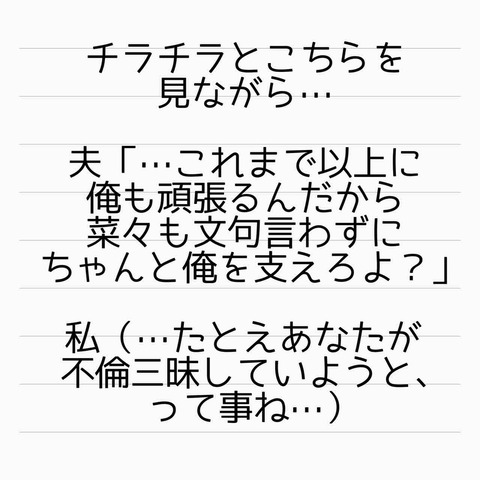 チラチラとこちらを
見ながら…
夫「…これまで以上に
俺も頑張るんだから
菜々も文句言わずに
ちゃんと俺を支えろよ？」
私（…たとえあなたが
不倫三昧していようと、
って事ね…）